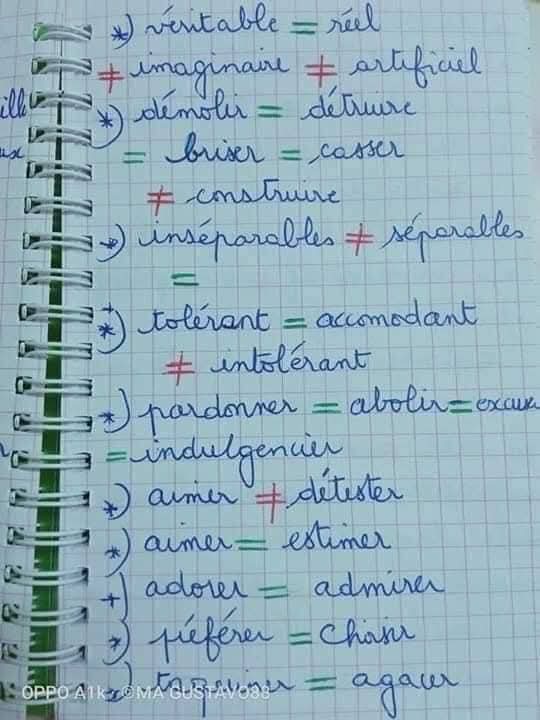 *) véritable = réel
≠ imaginaire ≠ artificiel
*) démolir = détruire
= briser = casser
≠ construire
*) inséparables ≠ séparables
=
*) tolérant = accomodant
≠ intolérant
*) pardonner = abolir =
= indulgencier
*) aimer ≠ détester
*) aimer = estimer
+) adorer = admirer
*) préférer = choisir
*) taquiner = agacer
OPPO A1k · ©MA GUSTAVO88